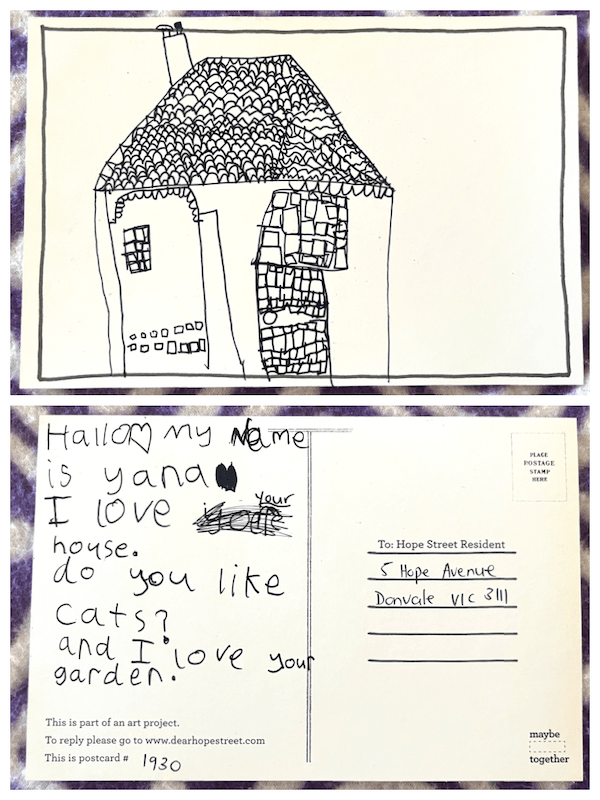 Hallo my Name
is yana
I love your
house.
do you like
cats?
and I love your
garden.
This is part of an art project.
To reply please go to www.dearhopestreet.com
This is postcard # 1930
PLACE
POSTAGE
STAMP
HERE
To: Hope Street Resident
5 Hope Avenue
Donvale VIC 3111
maybe
together